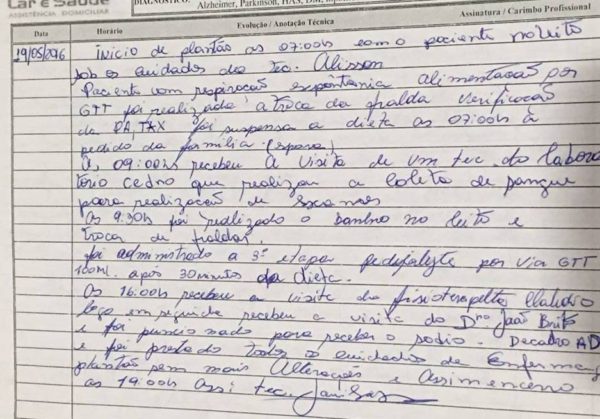 Lar e Saúde
ASSISTÊNCIA DOMICILIAR
DIAGNÓSTICO: Alzheimer, Parkinson, HAS, DM,
Data Horário Evolução / Anotação Técnica Assinatura / Carimbo Profissional
Início de plantão as 07:00h com o paciente no leito
sob os cuidados do tec. Alisson
Paciente com respiração espontânia alimentação por
GTT foi realizada a troca da fralda verificação
da PA, TAX foi suspensa a dieta as 07:00h à
pedido da família (esposa)
Às 09:00hs recebeu a visita de um tec do labora
tório cedro que realizou a coleta de sangue
para realização de exames
As 9:30h foi realizado o banho no leito e
troca de fraldas.
foi administrado a 3ª etapa pedialyte por via GTT
100ml. após 30 minutos da dieta.
As 16:00hs recebeu a visita do fisioterapeuta
logo em seguida recebeu a visita do Drº João Brito
e foi puncionado para receber o sodio. Decadro AD
e foi prestado todos os cuidados de Enfermag
plantão sem mais Alterações e
as 19:00h Assi tec.